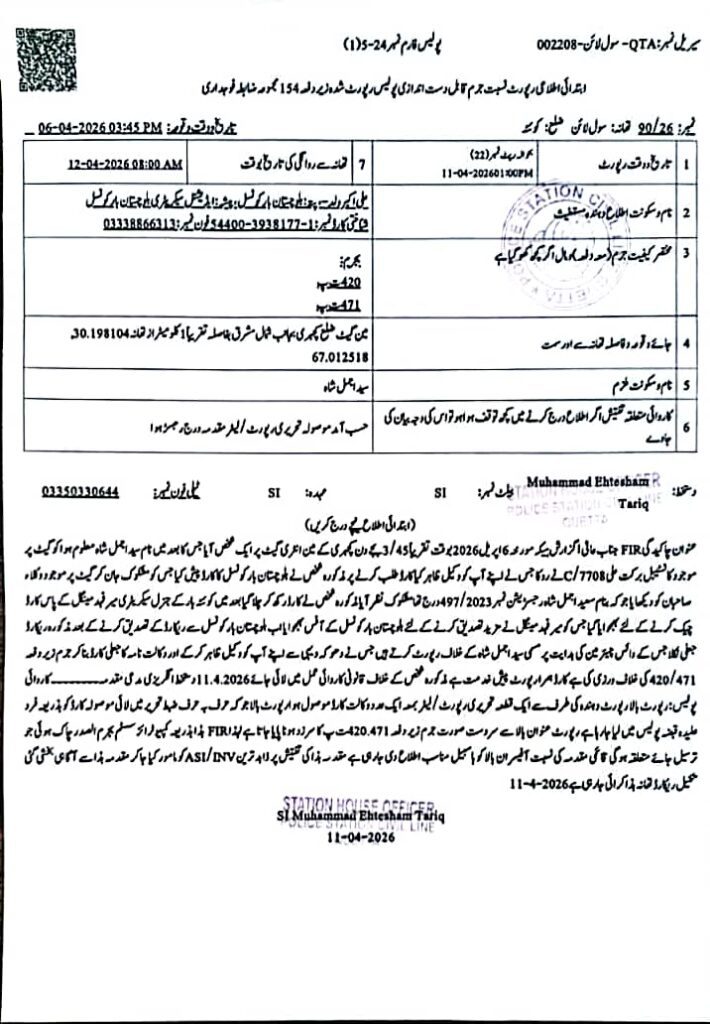 سیریل نمبر: QTA-سول لائن-002208
پولیس فارم نمبر 24-5(1)
ابتدائی اطلاعی رپورٹ نسبت جرم قابل دست اندازی پولیس رپورٹ شدہ زیر دفعہ 154 مجموعہ ضابطہ فوجداری
نمبر: 90/26 تھانہ: سول لائن ضلع: کوئٹہ
تاریخ و وقت وقوعہ: 06-04-2026 03:45 PM
1 تاریخ و وقت رپورٹ
بحوالہ رپٹ نمبر (22)
11-04-2026 01:00PM
7 تھانہ سے روانگی کی تاریخ و وقت
12-04-2026 08:00 AM
2 نام و سکونت اطلاع دہندہ مستغیث
علی اکبر ولد-- پتہ: بلوچستان بار کونسل: پیشہ: ایڈیشنل سیکریٹری بلوچستان بار کونسل
شناختی کارڈ نمبر: 54400-3938177-1 فون نمبر: 03338866313
3 مختصر کیفیت جرم (معہ دفعہ) و مال اگر کچھ کھو گیا ہے
بجرم:
420 ت پ
471 ت پ
4 جائے وقوعہ و فاصلہ تھانہ سے اور سمت
مین گیٹ ضلع کچہری بجانب شمال مشرق بفاصلہ تقریباً 1 کلومیٹر از تھانہ 30.198104,
67.012518
5 نام و سکونت ملزم
سید اجمل شاہ
6 کاروائی متعلقہ تفتیش اگر اطلاع درج کرنے میں کچھ توقف ہوا ہو تو اس کی وجہ بیان کی
جاوے
حسب آمد موصولہ تحریری رپورٹ/لیٹر مقدمہ درج رجسٹر ہوا
دستخط: Muhammad Ehtesham
Tariq
بیلٹ نمبر: SI عہدہ: SI ٹیلی فون نمبر: 03350330644
(ابتدائی اطلاع نیچے درج کریں)
عنوان چاکیدگی FIR جناب عالی! گزارش ہیکہ مورخہ 6 اپریل 2026 بوقت تقریباً 3/45 بجے دن کچہری کے مین انٹری گیٹ پر ایک شخص آیا جس کا بعد میں نام سید اجمل شاہ معلوم ہوا کو گیٹ پر
موجود کانسٹیبل برکت علی C/7708 نے روکا جس نے اپنے آپ کو وکیل ظاہر کیا کارڈ طلب کرنے پر مذکورہ شخص نے بلوچستان بار کونسل کا کارڈ پیش کیا جس کو مشکوک جان کر گیٹ پر موجود وکلاء
صاحبان کو دیکھایا جو کہ بنام سید اجمل شاہ رجسٹریشن نمبر 497/2023 درج تھا مشکوک نظر آیا مذکورہ شخص نے کارڈ رکھ کر چلا گیا بعد میں کوئٹہ بار کے جنرل سیکریٹری میر فہد مینگل کے پاس کارڈ
چیک کرنے کے لئے بھجوایا گیا جس کو میر فہد مینگل نے مزید تصدیق کرنے کے لئے بلوچستان بار کونسل کے آفس بھجوایا اب بلوچستان بار کونسل سے ریکارڈ کے تصدیق کرنے کے بعد مذکورہ ریکارڈ
جعلی نکلا جس کے وائس چیئرمین کی ہدایت پر مسمی سید اجمل شاہ کے خلاف رپورٹ کرتے ہیں جس نے دھوکہ دہی سے اپنے آپ کو وکیل ظاہر کر کے اور وکالت نامہ کا جعلی کارڈ بنا کر جرم زیر دفعہ
420/471 کی خلاف ورزی کی ہے کارڈ ہمراہ رپورٹ پیش خدمت ہے مذکورہ شخص کے خلاف قانونی کاروائی عمل میں لائی جائے 11.4.2026 دستخط انگریزی مدعی مقدمہ کاروائی
پولیس: رپورٹ بالا رپورٹ دہندہ کی طرف سے ایک قطعہ تحریری رپورٹ/لیٹر بمعہ ایک عدد وکالت کارڈ موصول ہوا رپورٹ بالا جو کہ حرف بہ حرف ضبط تحریر میں لائی موصولہ کارڈ کو بذریعہ فرد
علیحدہ قبضہ پولیس میں لیا جا رہا ہے رپورٹ عنوان بالا سے سردست صورت جرم زیر دفعہ 420.471 ت پ کا سرزد ہونا پایا جاتا ہے لہذا FIR ہذا بذریعہ کمپیوٹرائز سسٹم بجرم الصدر چاک ہوئی جو
ترسیل جائے متعلقہ ہوگی قائمی مقدمہ کی نسبت آفیسران بالا کو بالسبیل مناسب اطلاع دی جا رہی ہے مقدمہ ہذا کی تفتیش پر زاہد ترین ASI/INV کو مامور کیا جا کر مقدمہ ہذا سے آگاہی بخشی گئی
تکمیل ریکارڈ تھانہ ہذا کرائی جا رہی ہے 11-4-2026
STATION HOUSE OFFICER
SI Muhammad Ehtesham Tariq
POLICE STATION CIVIL LINE
11-04-2026